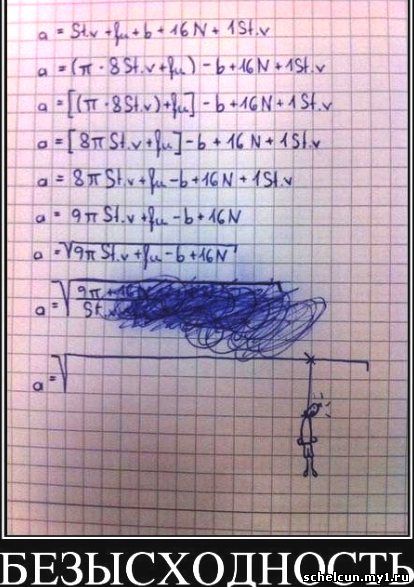 a = St.v + fu + b + 16N + 1St.v
a = (π · 8St.v + fu) - b + 16N + 1St.v
a = [(π · 8St.v) + fu] - b + 16N + 1St.v
a = [8πSt.v + fu] - b + 16N + 1St.v
a = 8πSt.v + fu - b + 16N + 1St.v
a = 9πSt.v + fu - b + 16N
a = √9πSt.v + fu - b + 16N
a = √9π + 16
St.
a = √
schelcun.my1.ru
БЕЗЫСХОДНОСТЬ